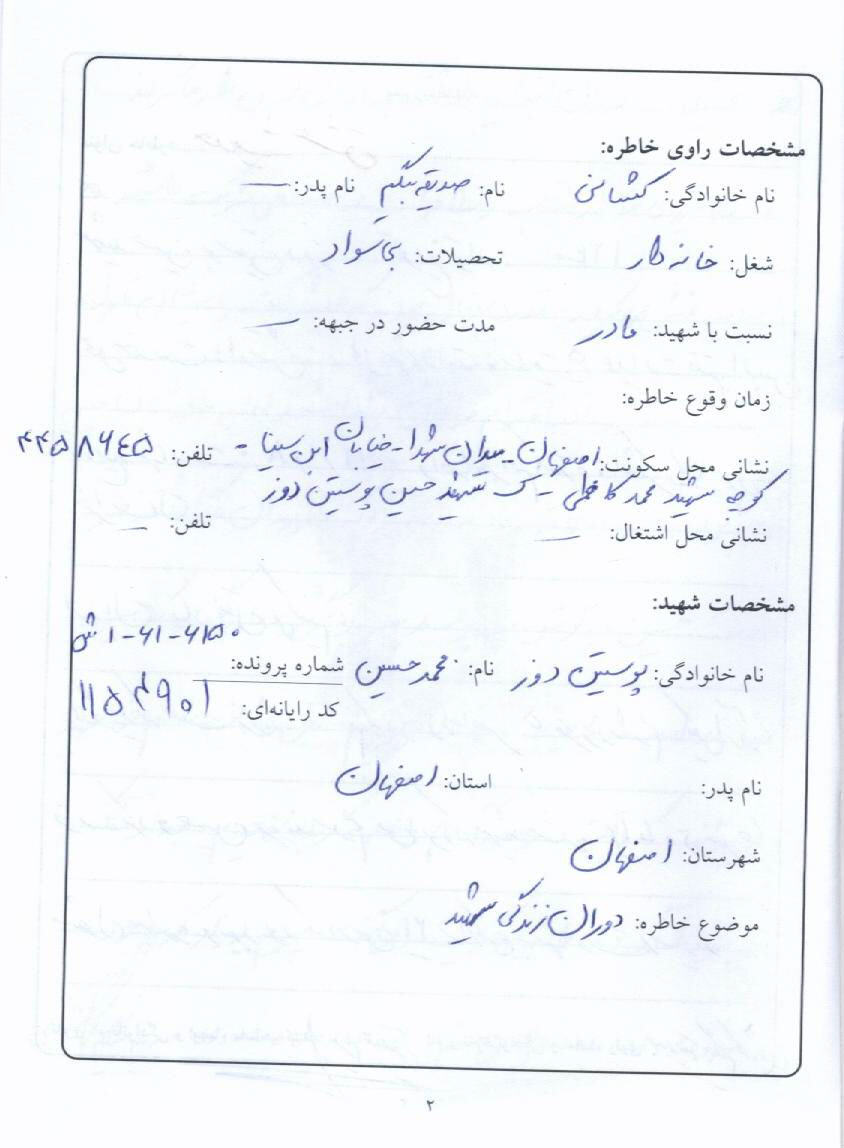 مشخصات راوی خاطره:
نام خانوادگی: کشانی نام: صدیقه بیگم نام پدر: —
شغل: خانه دار تحصیلات: بی سواد
نسبت با شهید: مادر مدت حضور در جبهه: —
زمان وقوع خاطره:
نشانی محل سکونت: اصفهان - میدان شهدا - خیابان ابن سینا - تلفن: ۴۴۵۸۶۴۵
کوچه شهید محمد کاظمی - ک شهید حسین پوستین دوز
نشانی محل اشتغال: — تلفن: —
مشخصات شهید:
نام خانوادگی: پوستین دوز نام: محمد حسین شماره پرونده: ۱-۶۱-۶۱۵۰ ش
کد رایانه‌ای: ۱۱۵۴۹۰۱
نام پدر: استان: اصفهان
شهرستان: اصفهان
موضوع خاطره: دوران زندگی شهید
۲